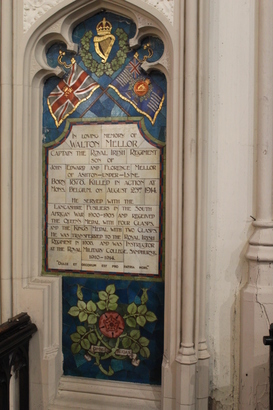 IN LOVING MEMORY OF
WALTON MELLOR
CAPTAIN THE ROYAL IRISH REGIMENT
SON OF
JOHN EDWARD AND FLORENCE MELLOR
OF ASHTON-UNDER-LYNE.
BORN 1878. KILLED IN ACTION AT
MONS, BELGIUM, ON AUGUST 23RD 1914.
HE SERVED WITH THE
LANCASHIRE FUSILIERS IN THE SOUTH
AFRICAN WAR 1900-1903 AND RECEIVED
THE QUEEN'S MEDAL WITH FOUR CLASPS,
AND THE KING'S MEDAL WITH TWO CLASPS.
HE WAS TRANSFERRED TO THE ROYAL IRISH
REGIMENT IN 1908, AND WAS INSTRUCTOR
AT THE ROYAL MILITARY COLLEGE, SANDHURST,
1910-1914.